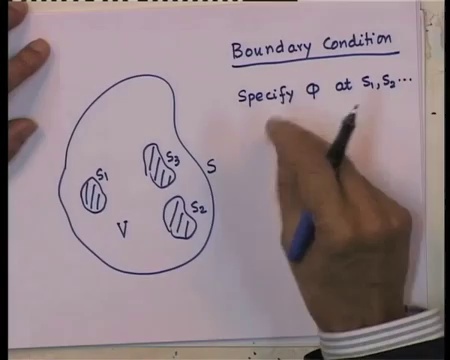 Boundary Condition
Specify Φ at S₁, S₂ ...
S₁
S₃
S
S₂
V